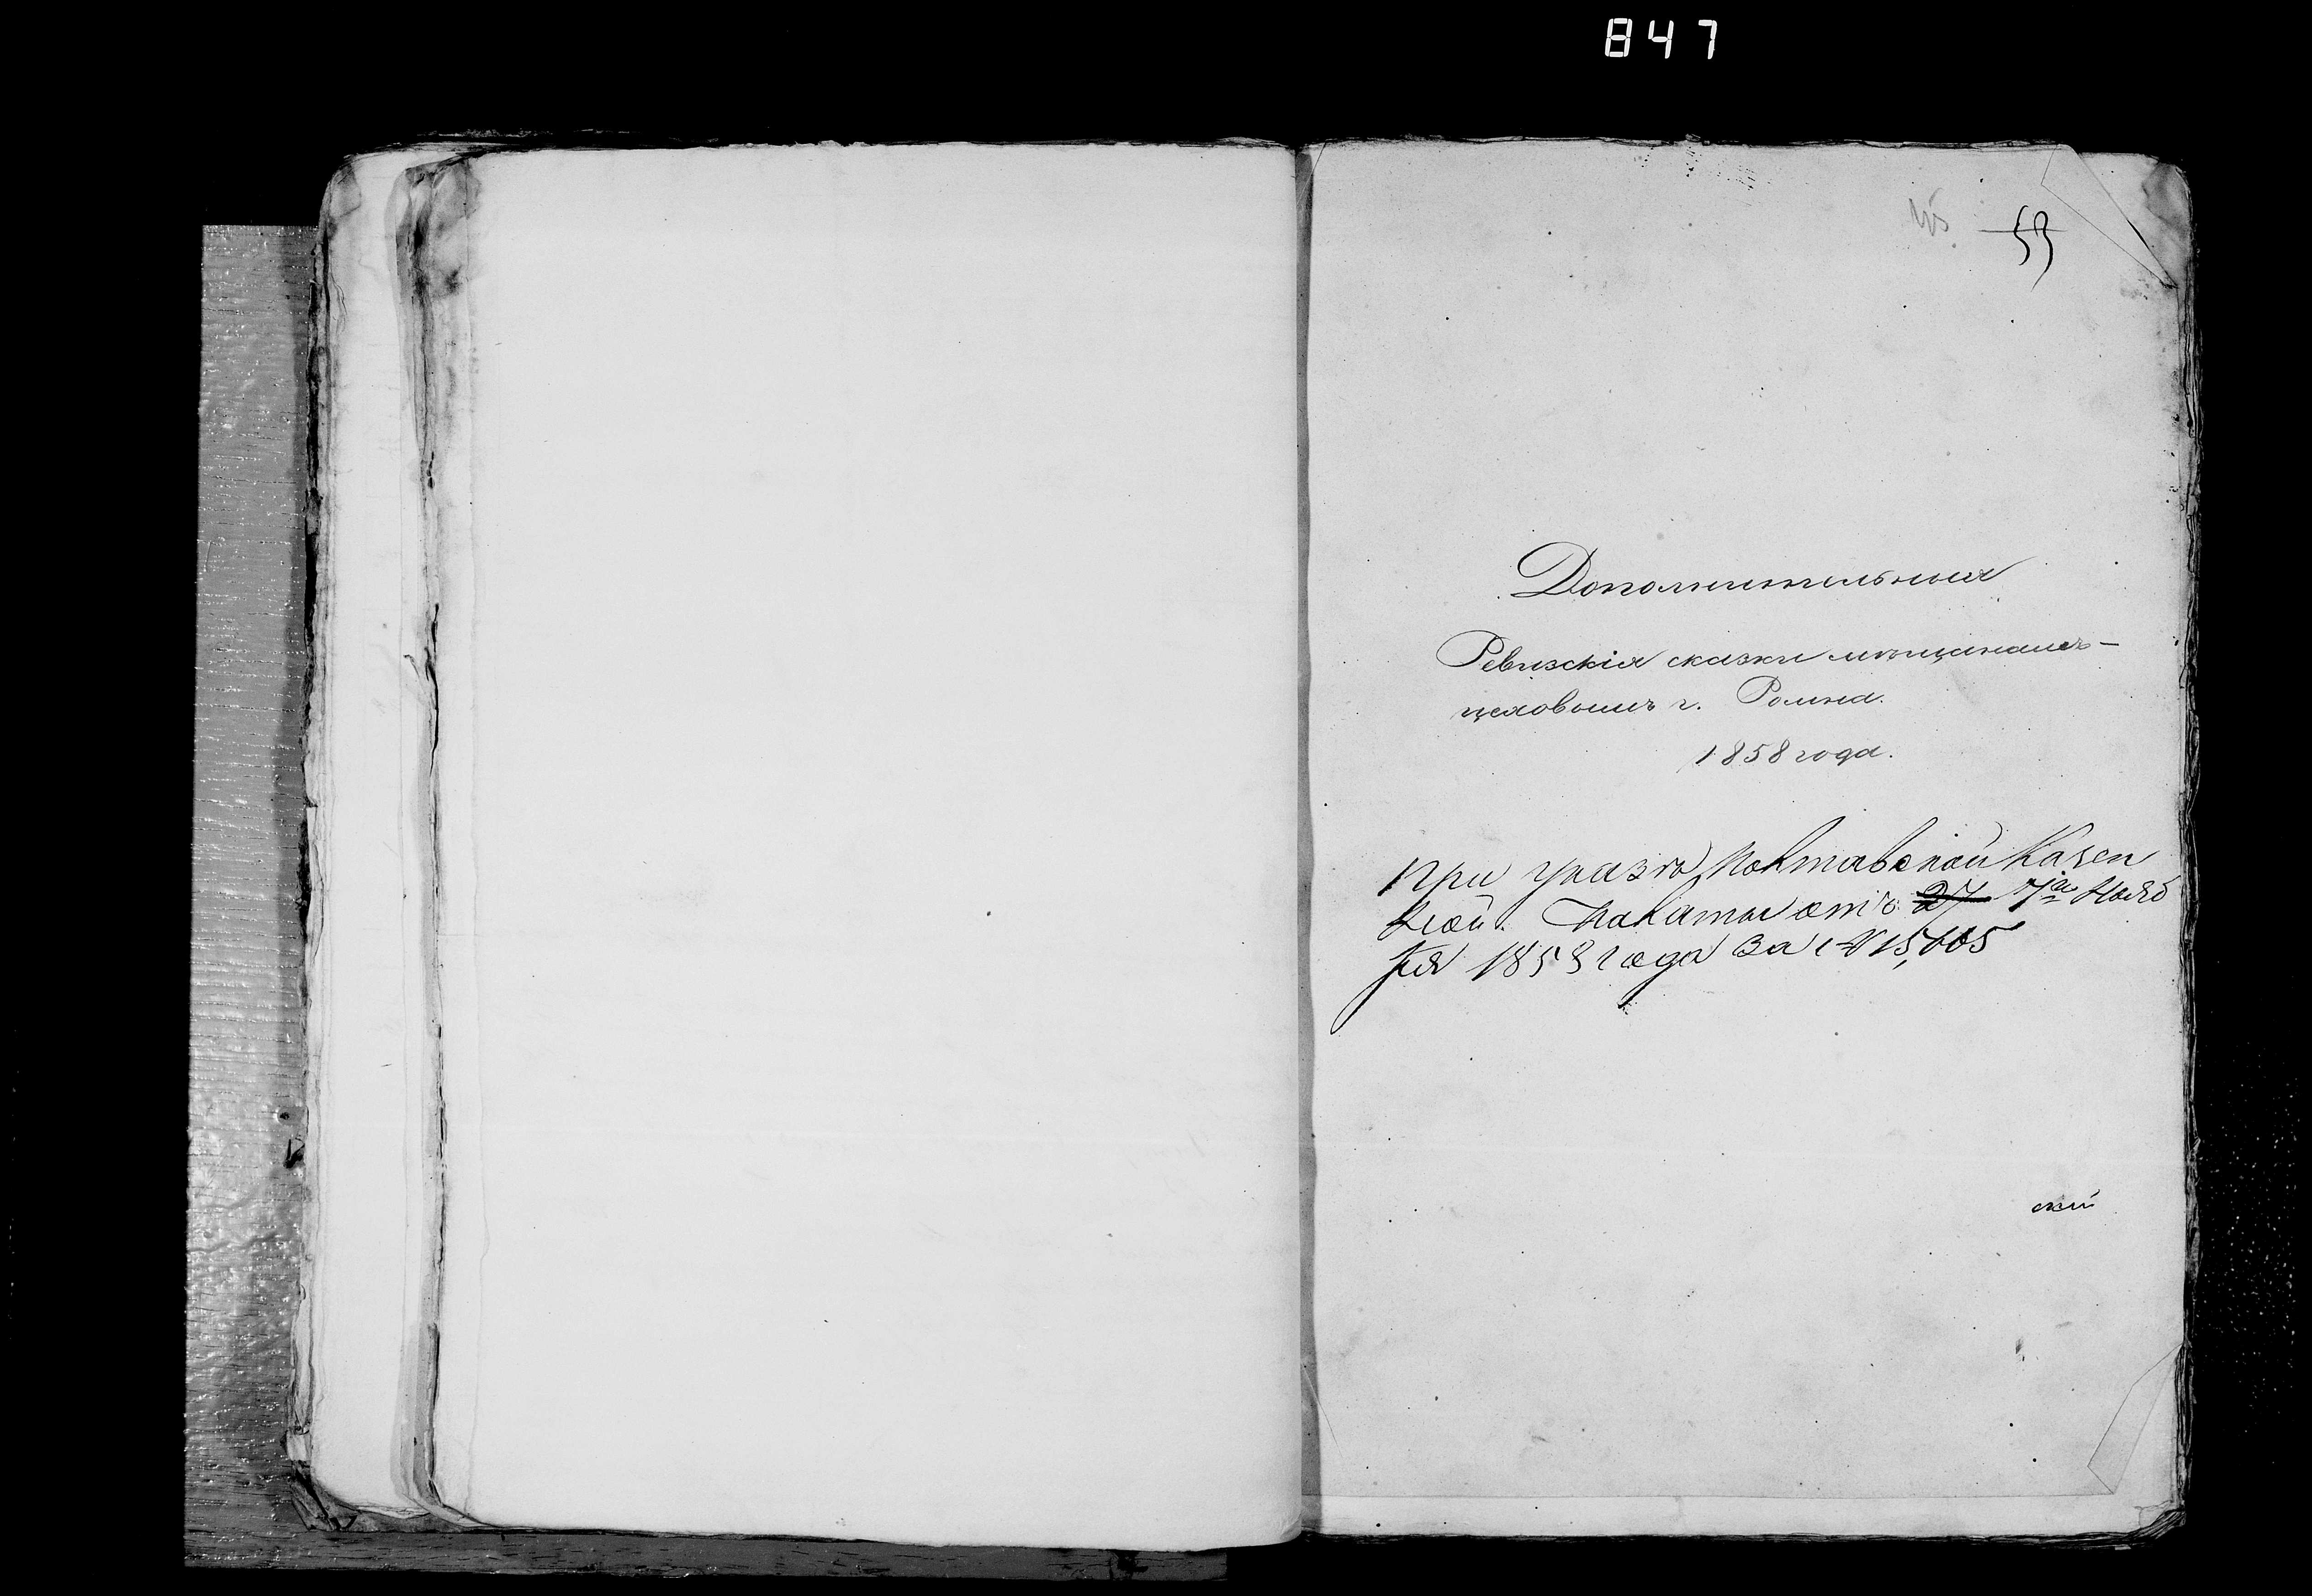 847
53
Дополнительныя
Ревизскія сказки мѣщанамъ-
цеховымъ г. Ромна.
1858 года.
При указѣ Полтавской Казен
ной Палаты отъ 27 7го Нояб
ря 1858 года за № 15,605
скій